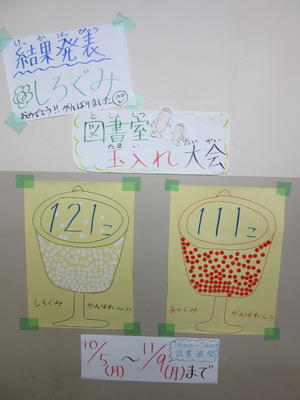 けっかはっぴょう
結果発表
しろぐみ
おめでとう!! がんばりました
としょしつ
図書室
たまい たいかい
玉入れ 大会
121こ
111こ
しろぐみ がんばれ〜!!
あかぐみ がんばれ〜!!
10/5(月)〜11/9(月)まで
読書週間